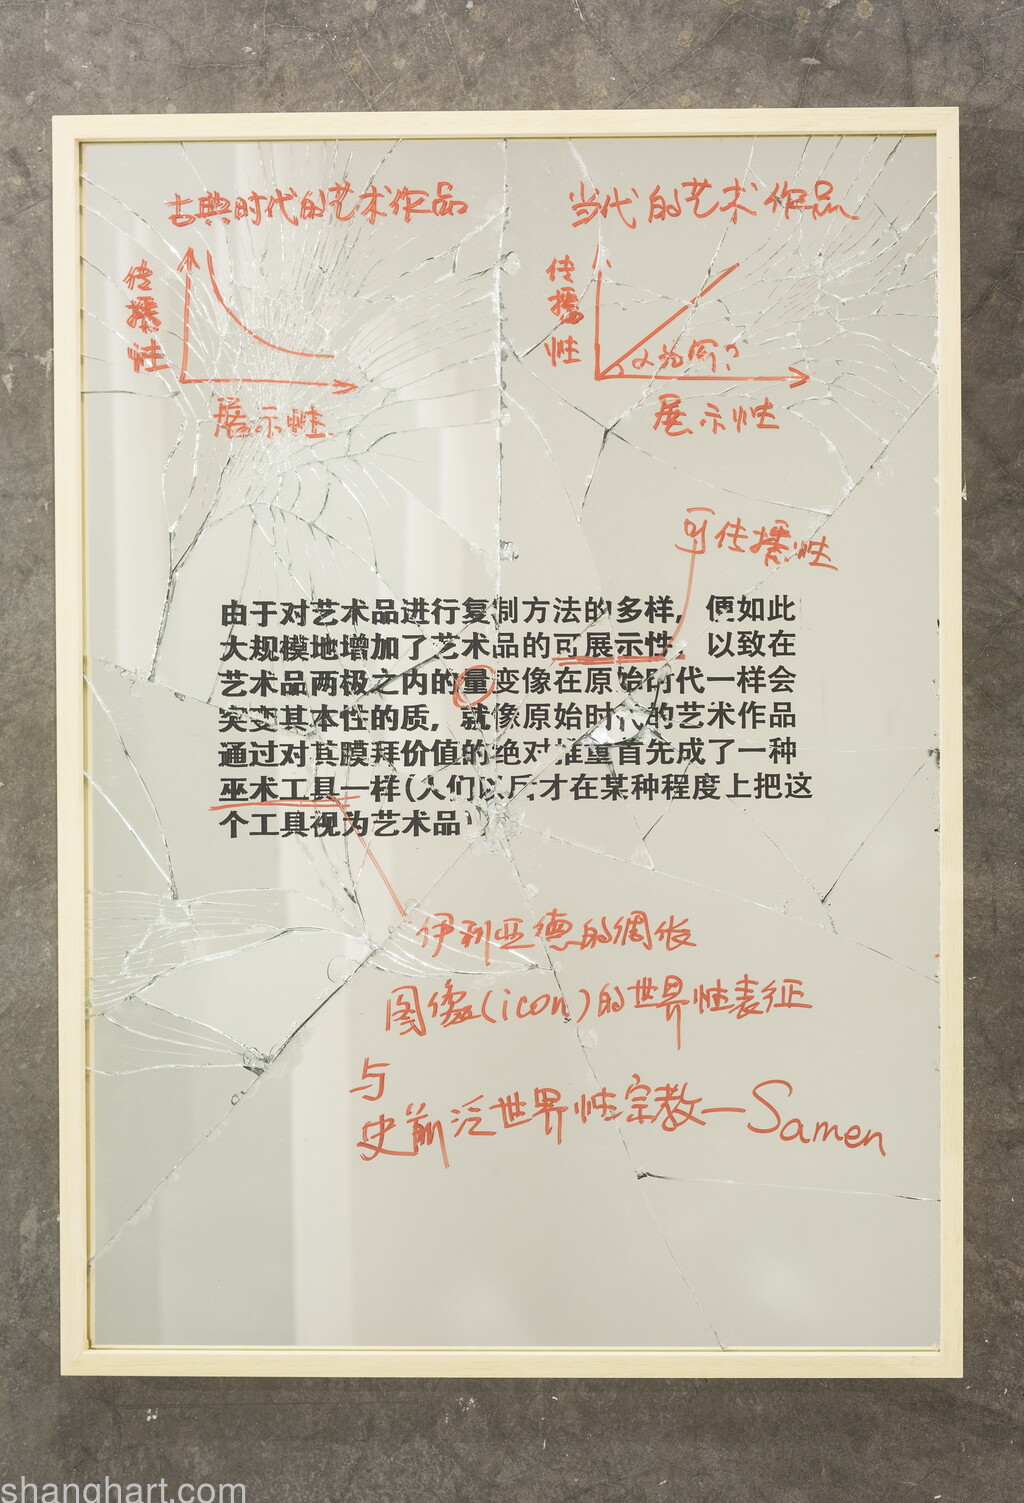 古典时代的艺术作品
当代的艺术作品
传播性
展示性
传播性
α为何？
展示性
可传播性
由于对艺术品进行复制方法的多样，便如此
大规模地增加了艺术品的可展示性，以致在
艺术品两极之内的量变像在原始时代一样会
突变其本性的质，就像原始时代的艺术作品
通过对其膜拜价值的绝对推重首先成了一种
巫术工具一样(人们以后才在某种程度上把这
个工具视为艺术品)
伊利亚德的
图像(icon)的世界性表征
与
史前泛世界性宗教—Samen
shanghart.com